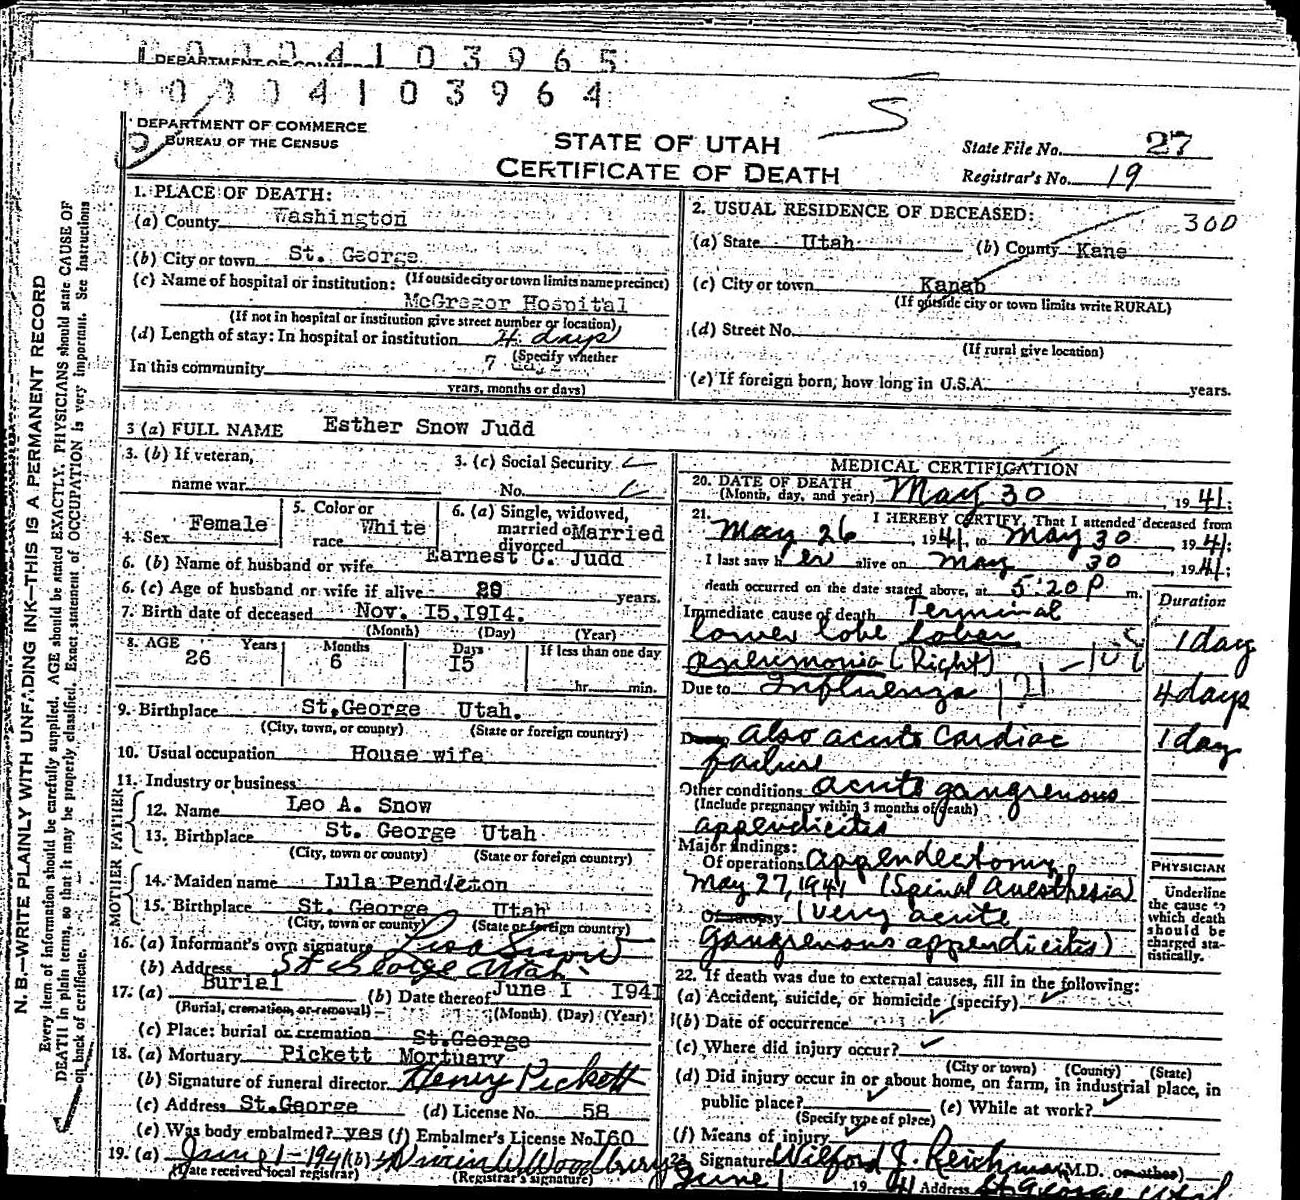 DEPARTMENT OF COMMERCE
0 4 1 0 3 9 6 5
0 0 0 4 1 0 3 9 6 4
DEPARTMENT OF COMMERCE
BUREAU OF THE CENSUS
STATE OF UTAH
CERTIFICATE OF DEATH
State File No. 27
Registrar's No. 19
N. B.—WRITE PLAINLY WITH UNFADING INK—THIS IS A PERMANENT RECORD
Every item of information should be carefully supplied. AGE should be stated EXACTLY. PHYSICIANS should state CAUSE OF
DEATH in plain terms, so that it may be properly classified. Exact statement of OCCUPATION is very important. See Instructions
on back of certificate.
1. PLACE OF DEATH:
(a) County Washington
(b) City or town St. George
(If outside city or town limits name precinct)
(c) Name of hospital or institution:
McGregor Hospital
(If not in hospital or institution give street number or location)
(d) Length of stay: In hospital or institution 4 days
(Specify whether
In this community 7 days
years, months or days)
2. USUAL RESIDENCE OF DECEASED:
300
(a) State Utah (b) County Kane
(c) City or town Kanab
(If outside city or town limits write RURAL)
(d) Street No.
(If rural give location)
(e) If foreign born, how long in U.S.A. years.
3 (a) FULL NAME Esther Snow Judd
3. (b) If veteran,
name war
3. (c) Social Security
No.
4. Sex Female
5. Color or
race White
6. (a) Single, widowed,
married or Married
divorced
6. (b) Name of husband or wife Earnest C. Judd
6. (c) Age of husband or wife if alive years.
7. Birth date of deceased Nov. 15, 1914.
(Month) (Day) (Year)
8. AGE Years Months Days If less than one day
26 6 15
hr. min.
9. Birthplace St. George Utah.
(City, town, or county) (State or foreign country)
10. Usual occupation House wife
11. Industry or business
FATHER
12. Name Leo A. Snow
13. Birthplace St. George Utah
(City, town or county) (State or foreign country)
MOTHER
14. Maiden name Lula Pendleton
15. Birthplace St. George Utah
(City, town or county) (State or foreign country)
16. (a) Informant's own signature Snow
(b) Address St George Utah.
17. (a) Burial (b) Date thereof June 1 1941
(Burial, cremation, or removal) (Month) (Day) (Year)
(c) Place: burial or cremation St. George
18. (a) Mortuary Pickett Mortuary
(b) Signature of funeral director Henry Pickett
(c) Address St. George (d) License No. 58
(e) Was body embalmed? yes (f) Embalmer's License No. 160
19. (a) June 1-1941 (b) Woodbury
(Date received local registrar) (Registrar's signature)
MEDICAL CERTIFICATION
20. DATE OF DEATH
(Month, day, and year) May 30, 1941;
21. I HEREBY CERTIFY, That I attended deceased from
May 26, 1941, to May 30, 1941;
I last saw her alive on May 30, 1941;
death occurred on the date stated above, at 5:20 P m.
Duration
Immediate cause of death Terminal
lower lobe lobar 1 day
pneumonia (Right)
Due to Influenza 4 days
Due to also acute cardiac 1 day
failure
Other conditions acute gangrenous
(Include pregnancy within 3 months of death)
appendicitis
Major findings:
Of operations appendectomy
May 27, 1941 (Spinal Anesthesia)
Of autopsy (very acute
gangrenous appendicitis)
PHYSICIAN
Underline
the cause to
which death
should be
charged sta-
tistically.
22. If death was due to external causes, fill in the following:
(a) Accident, suicide, or homicide (specify)
(b) Date of occurrence
(c) Where did injury occur?
(City or town) (County) (State)
(d) Did injury occur in or about home, on farm, in industrial place, in
public place? (e) While at work?
(Specify type of place)
(f) Means of injury
23. Signature Wilford J. Reichmann M.D. or other)
June 1 1941 Address St George Utah